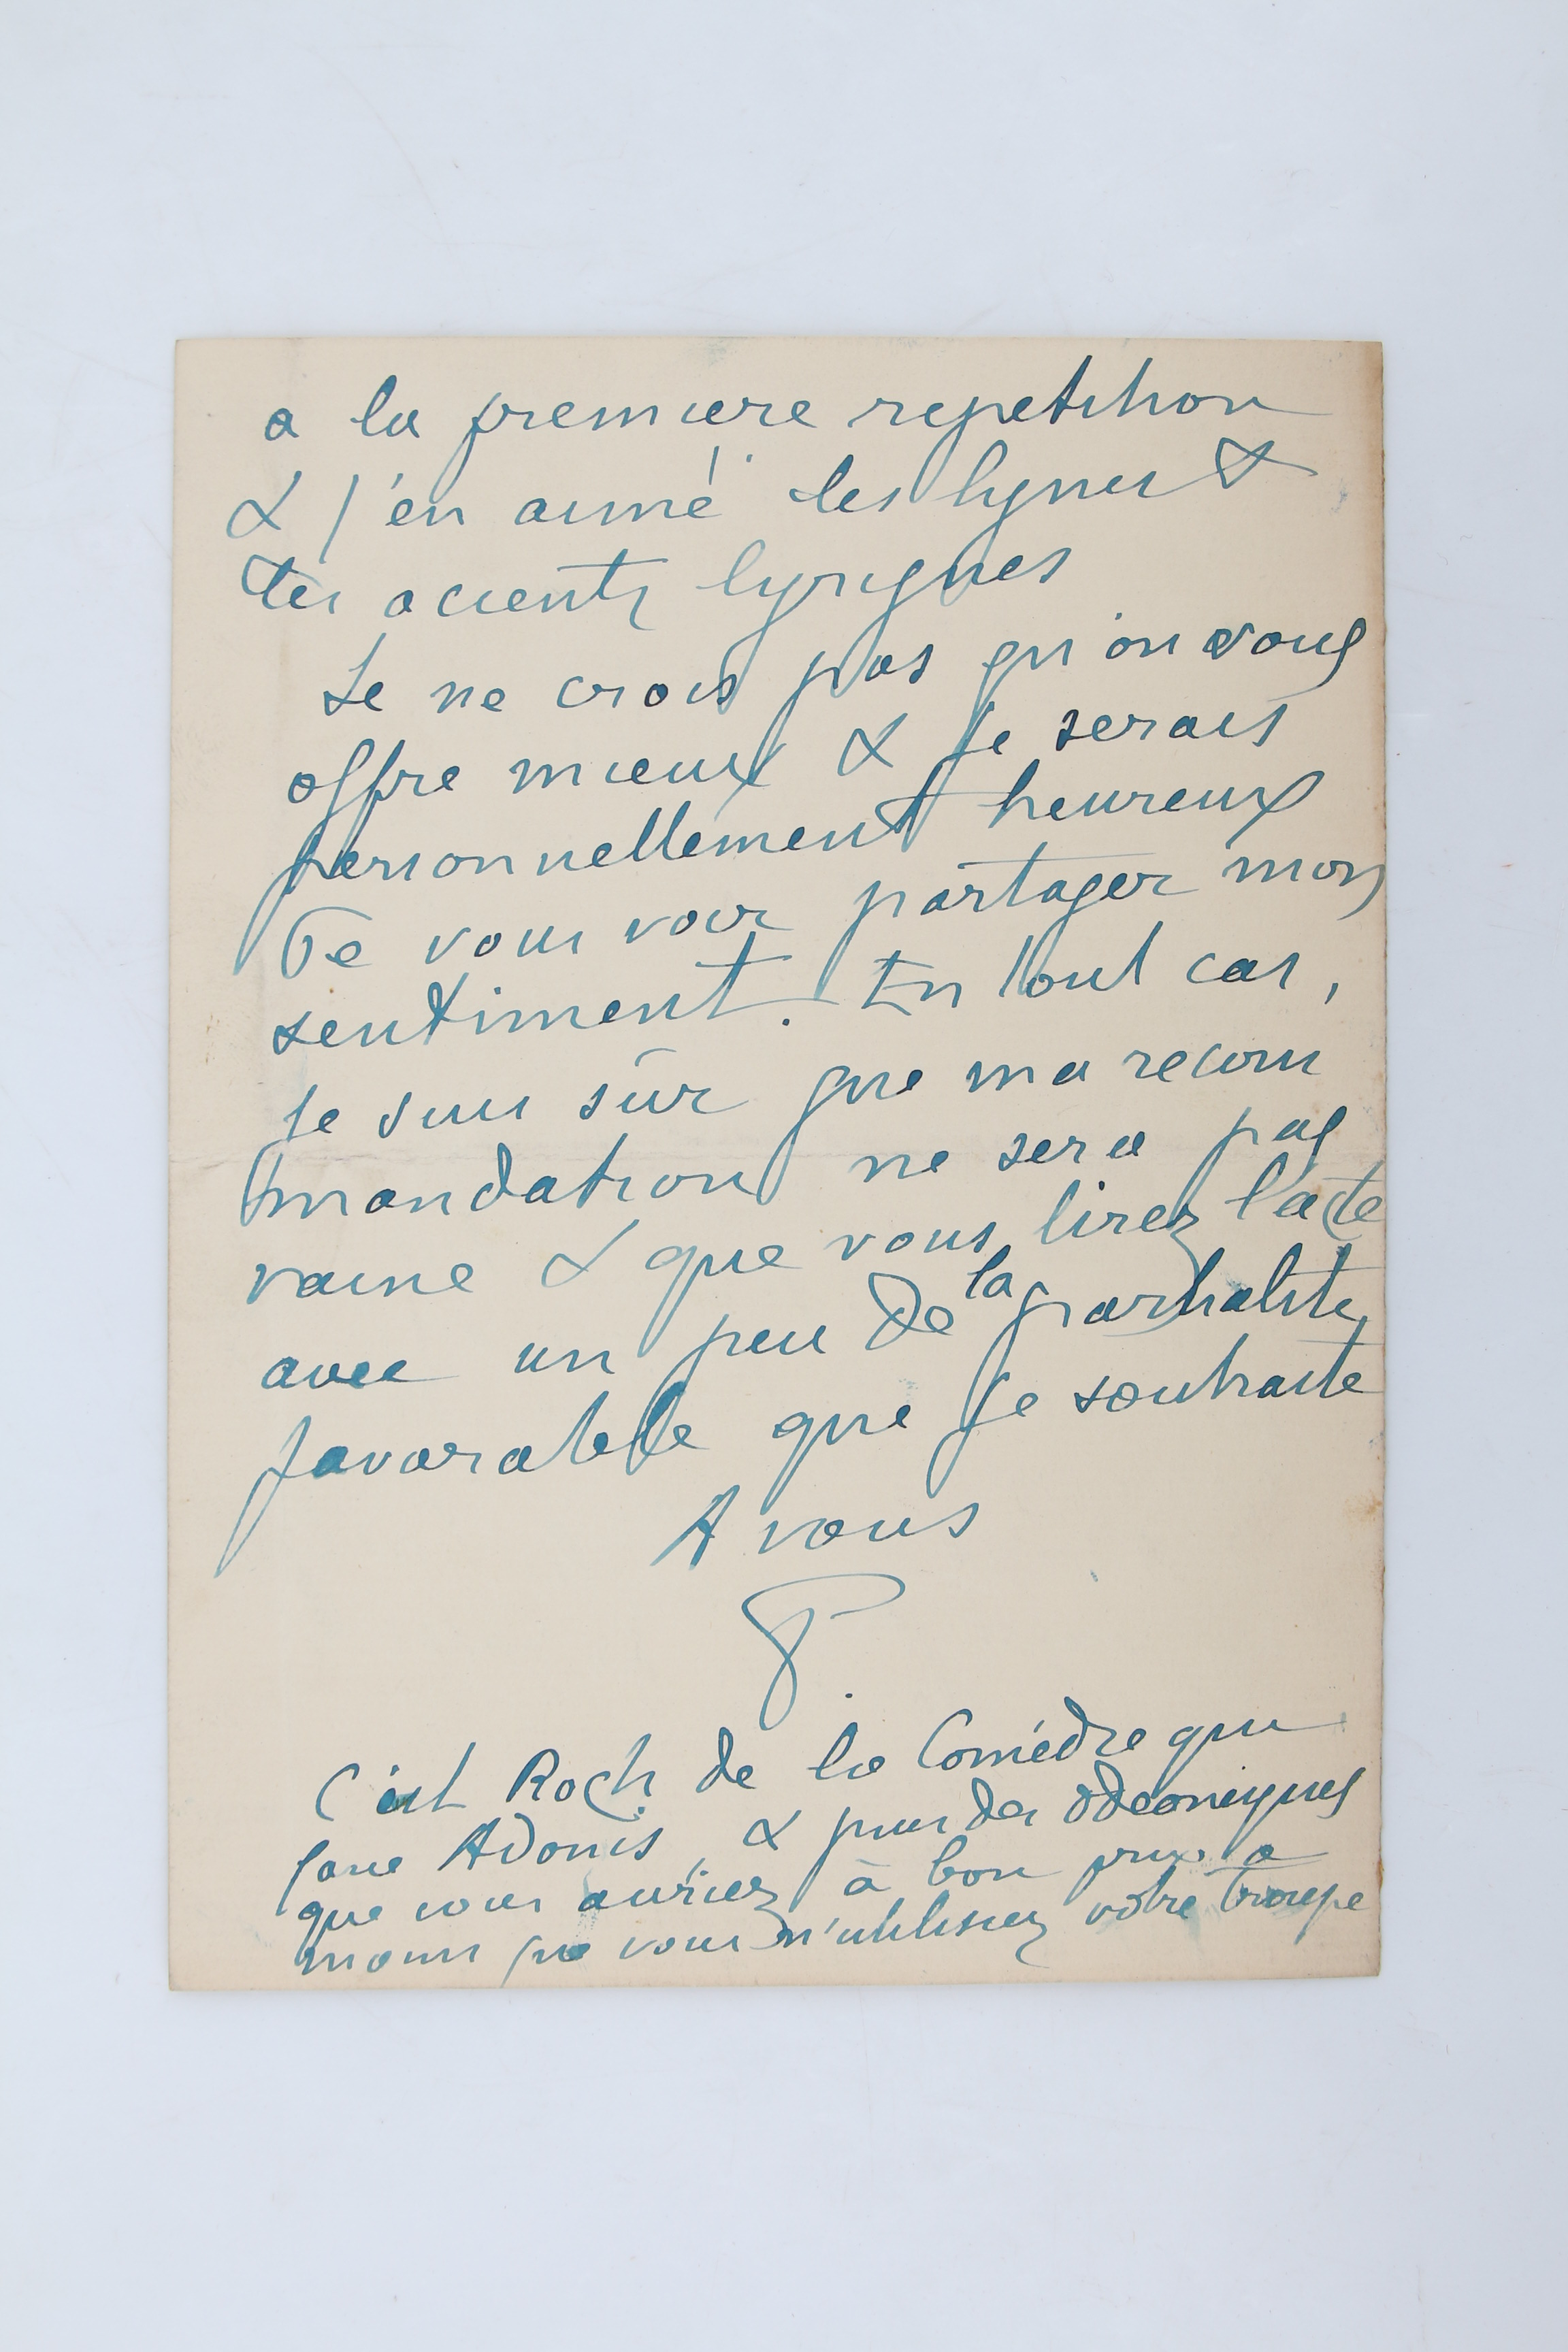 a la premiere repetition
& j'en aimé les lignes &
les accents lyriques
Je ne crois pas qu'on vous
offre mieux & je serais
personnellement heureux
de vous voir partager mon
sentiment. En tout cas,
je suis sûr que ma recom
mandation ne sera pas
vaine & que vous lirez l'acte
avec un peu de la partialité
favorable que je souhaite
A vous
P.
C'est Roch de la Comédie qui
joue Adonis, & puis des odeoniques
que vous auriez à bon prix a
moins que vous n'utilisiez votre troupe